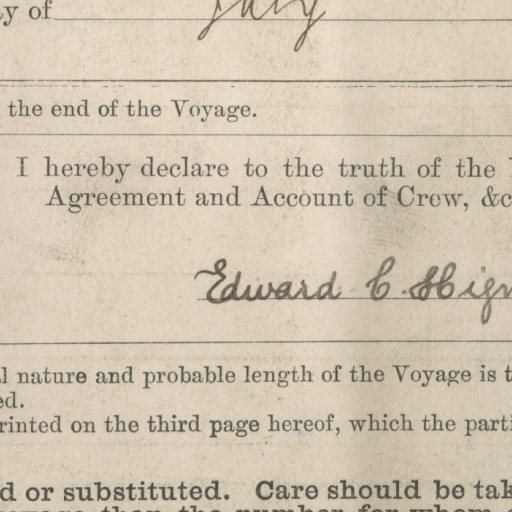 y of July
the end of the Voyage.
I hereby declare to the truth of the
Agreement and Account of Crew, &c
Edward C. Hign
l nature and probable length of the Voyage is t
ed.
rinted on the third page hereof, which the parti
d or substituted. Care should be tak
voyage than the number for whom